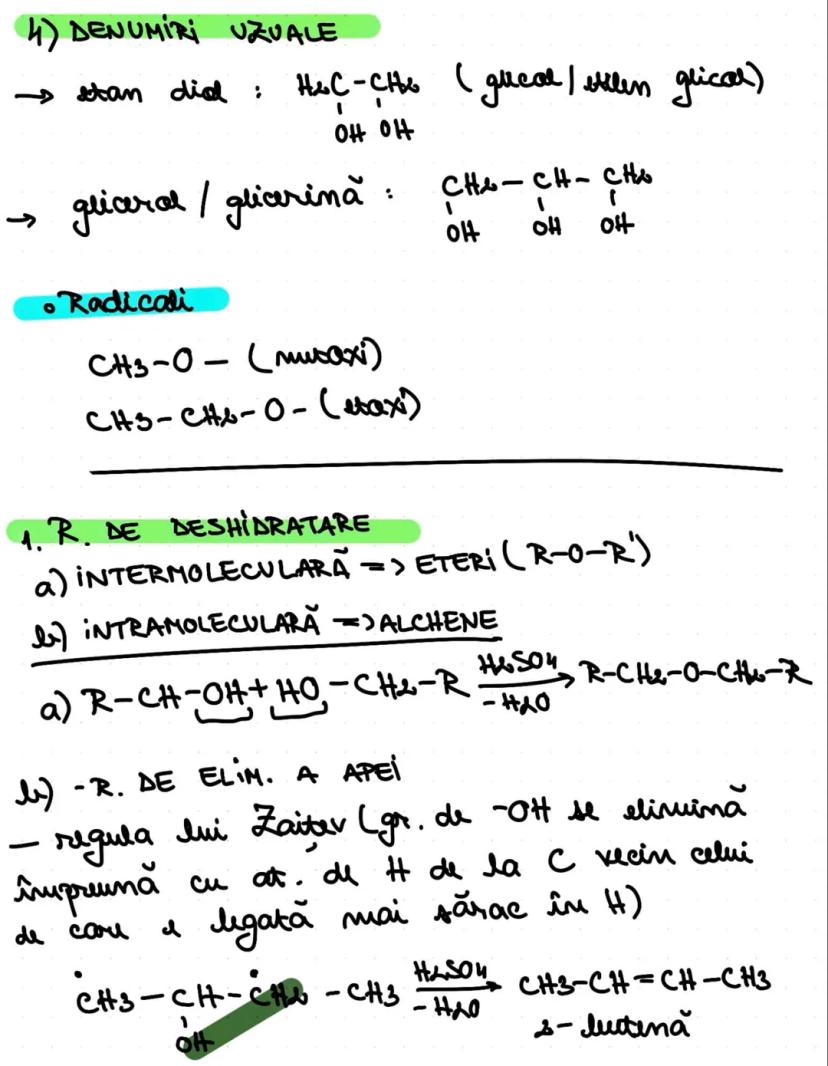 4) DENUMIRI UZUALE
→ etan diol : H₂C-CH₂ (glicol/etilen glicol)
OH OH
→ glicerol / glicerină : CH₂-CH-CH₂
OH OH OH
• Radicali
CH₃-O- (metoxi)
CH₃-CH₂-O- (etoxi)
1. R. DE DESHIDRATARE
a) INTERMOLECULARĂ => ETERI (R-O-R')
b) INTRAMOLECULARĂ => ALCHENE
a) R-CH-OH + HO-CH₂-R H₂SO₄ → R-CH₂-O-CH₂-R
-H₂O
b) -R. DE ELIM. A APEI
- regula lui Zaițev (gr. de -OH se elimină
împreună cu at. de H de la C vecin celui
de care e legată mai sărac în H)
CH₃-CH-CH₂-CH₃ H₂SO₄ → CH₃-CH=CH-CH₃
OH -H₂O 2-butenă